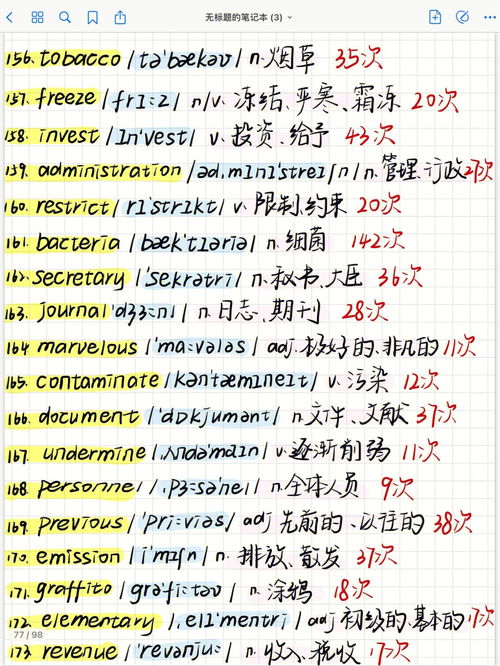 无标题的笔记本 (3)
156. tobacco /tə'bækəʊ/ n. 烟草 35次
157. freeze /fri:z/ n/v. 冻结、严寒、霜冻 20次
158. invest /ɪn'vest/ v. 投资、给予 43次
159. administration /əd,mɪnɪ'streɪʃn/ n. 管理、行政 27次
160. restrict /rɪ'strɪkt/ v. 限制、约束 20次
161. bacteria /bæk'tɪəriə/ n. 细菌 142次
162. secretary /'sekrətri/ n. 秘书、大臣 36次
163. journal 'dʒɜ:nl / n. 日志、期刊 28次
164 marvelous /'ma:vələs/ adj. 极好的、非凡的 11次
165. contaminate /kən'tæmɪneɪt/ v. 污染 12次
166. document /'dɒkjumənt/ n. 文件、文献 37次
167. undermine /,ʌndə'maɪn/ v. 逐渐削弱 11次
168. personnel /,pɜ:sə'nel/ n. 全体人员 9次
169. previous /'pri:viəs/ adj 先前的、以往的 38次
170. emission /ɪ'mɪʃn/ n. 排放、散发 37次
171. graffito /grə'fi:təʊ/ n. 涂鸦 18次
172. elementary /,elɪ'mentri/ adj 初级的、基本的 17次
77 / 98
173. revenue /'revənju:/ n. 收入、税收 17次